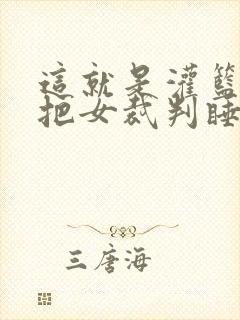 這就是灌籃
把女裁判睡
三唐海